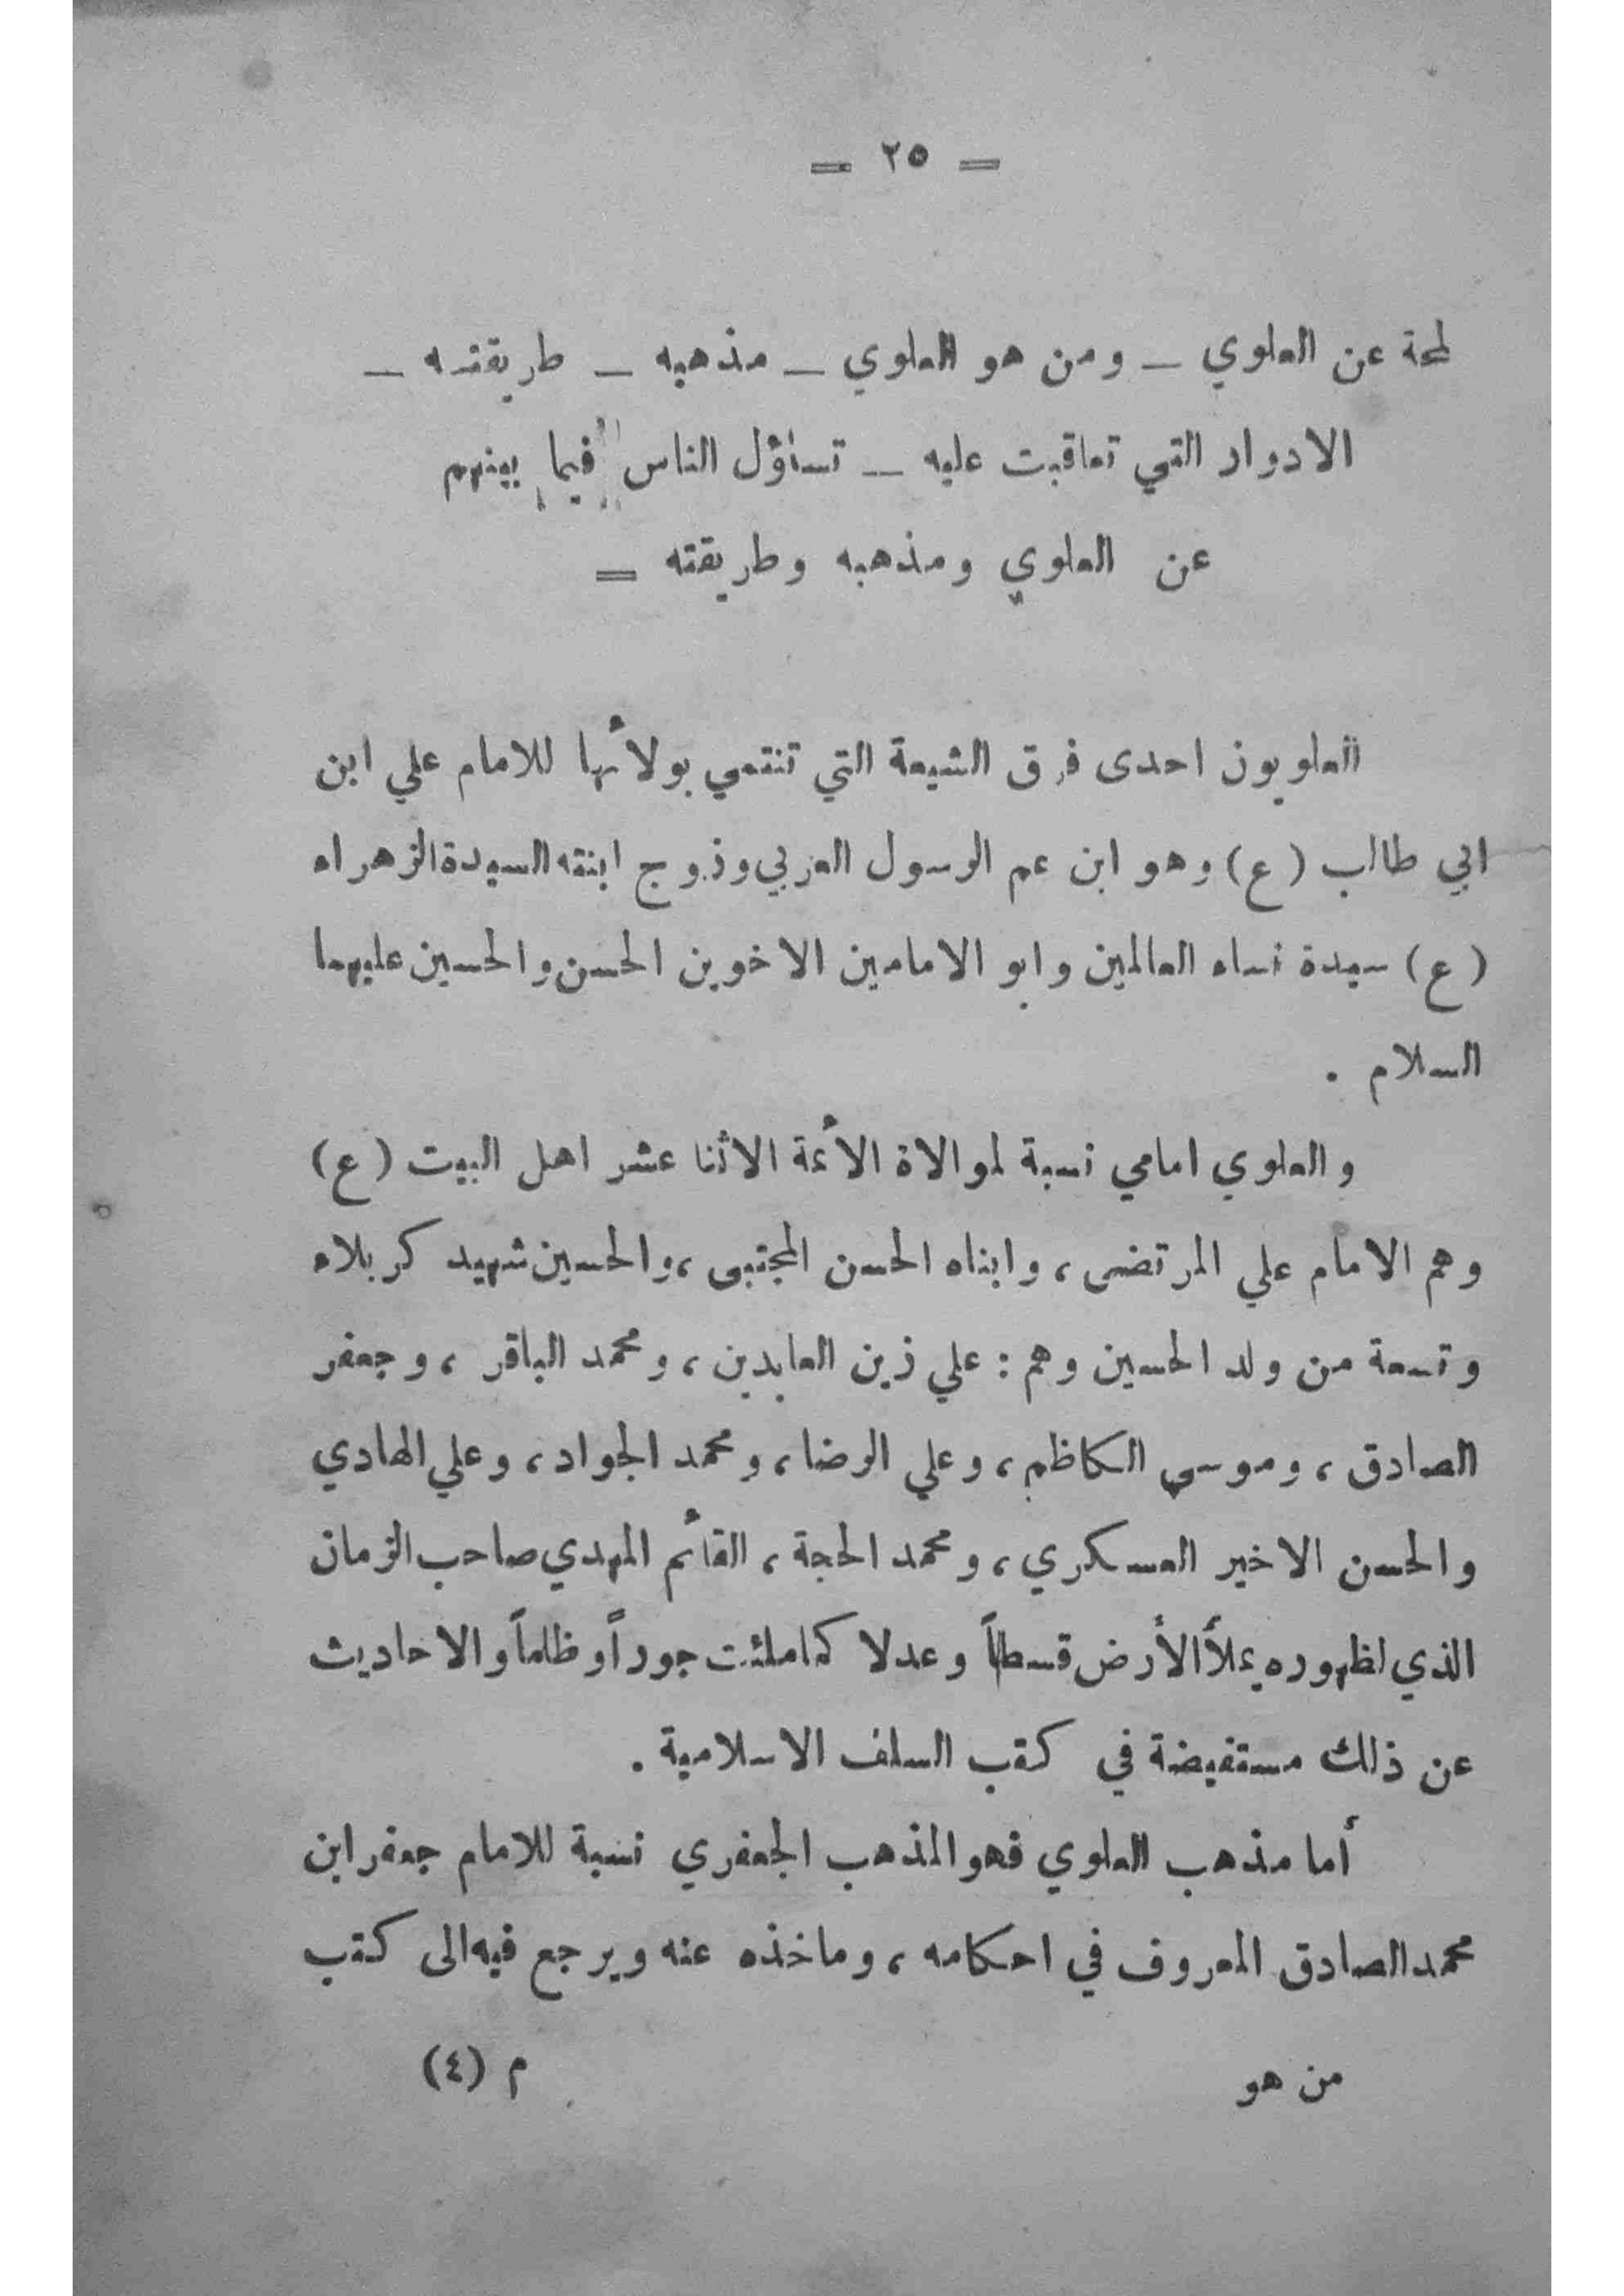 = ٢٥ =
لمحة عن العلوي ـ ومن هو العلوي ـ مذهبه ـ طريقته ـ
الادوار التي تعاقبت عليه ـ تساؤل الناس فيما بينهم
عن العلوي ومذهبه وطريقته =
العلويون احدى فرق الشيعة التي تنتمي بولائها للامام علي ابن
ابي طالب (ع) وهو ابن عم الرسول العربي وزوج ابنته السيدة الزهراء
(ع) سيدة نساء العالمين وابو الامامين الاخوين الحسن والحسين عليهما
السلام .
والعلوي امامي نسبة لموالاة الأئمة الاثنا عشر اهل البيت (ع)
وهم الامام علي المرتضى ، وابناه الحسن المجتبى ، والحسين شهيد كربلاء
وتسعة من ولد الحسين وهم : علي زين العابدين ، ومحمد الباقر ، وجعفر
الصادق ، وموسى الكاظم ، وعلي الرضا ، ومحمد الجواد ، وعلي الهادي
والحسن الاخير العسكري ، ومحمد الحجة ، القائم المهدي صاحب الزمان
الذي لظهوره يملأ الأرض قسطاً وعدلا كما ملئت جوراً وظلماً والاحاديث
عن ذلك مستفيضة في كتب السلف الاسلامية .
أما مذهب العلوي فهو المذهب الجعفري نسبة للامام جعفر ابن
محمد الصادق المعروف في احكامه ، وماخذه عنه ويرجع فيه الى كتب
من هو م (٤)